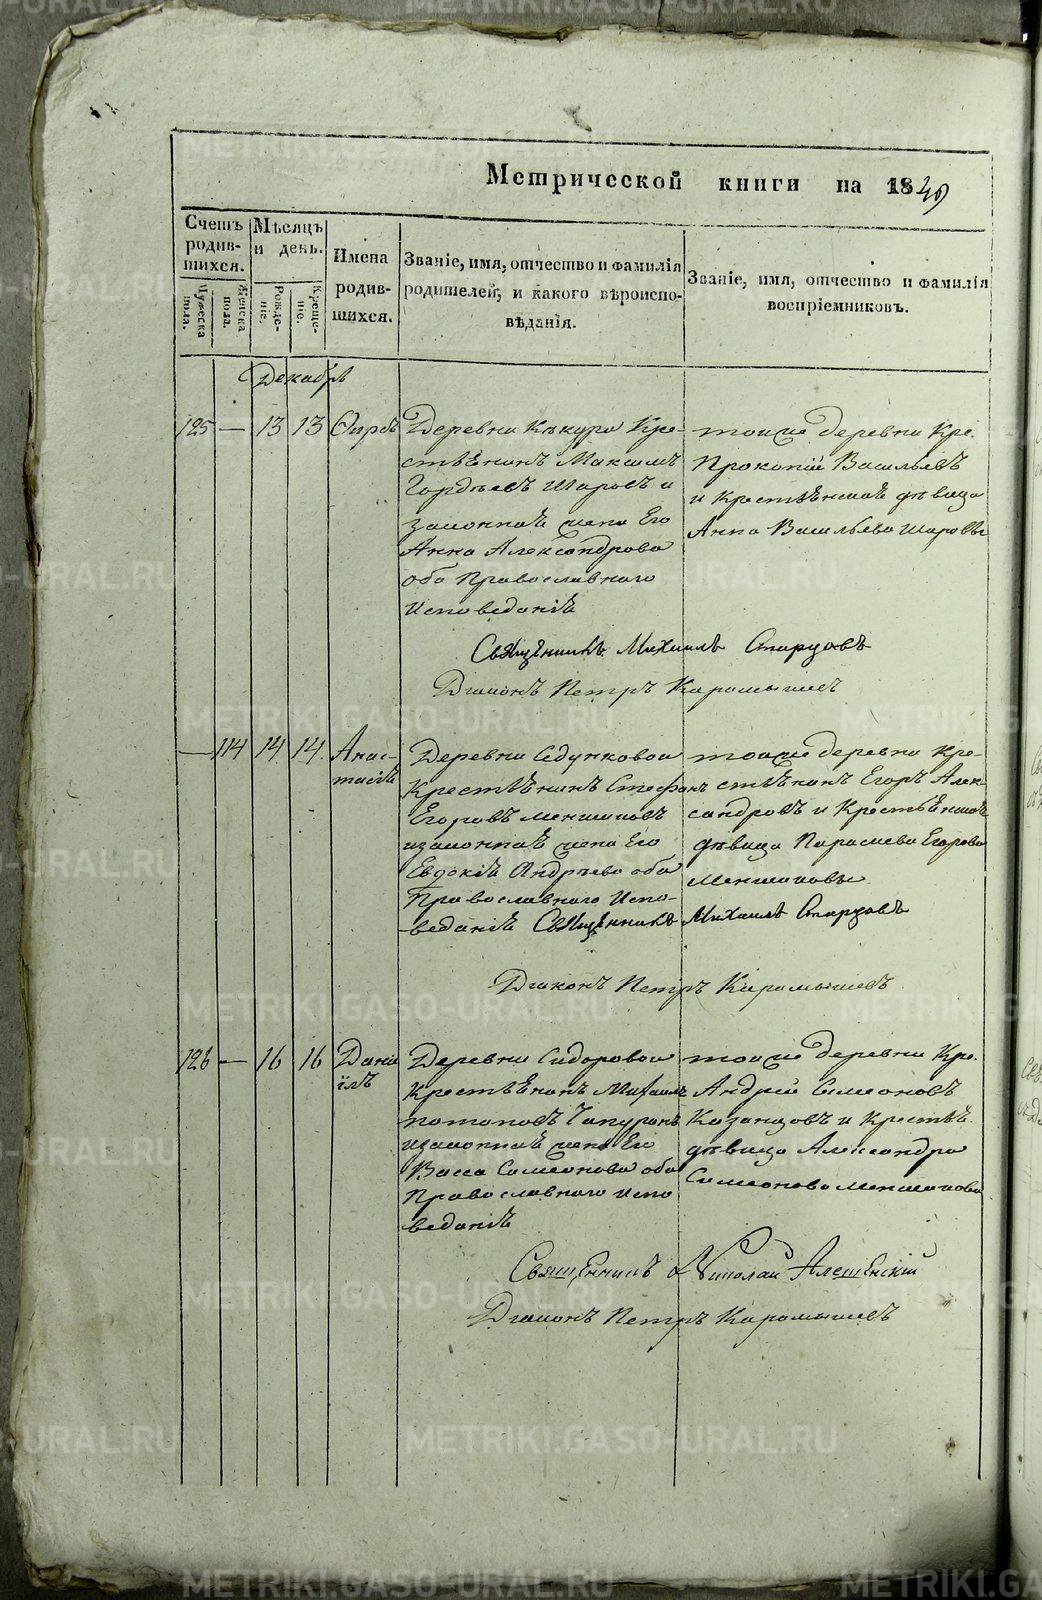 Метрической книги на 1849
Счетъ родив-шихся.
Мѣсяцъ и день.
Имена родив-шихся.
Званіе, имя, отчество и фамилія родителей, и какого вѣроиспо-вѣданія.
Званіе, имя, отчество и фамилія воспріемниковъ.
Мужеска пола.
Женска пола.
Рожде-ніе.
Креще-ніе.
Декабрь
125 — 13 13
Деревни Кре-
стьянинъ Максимъ
Гордѣевъ Шаровъ и
законная жена Его
Анна Александрова
оба Православнаго
Исповеданія
тоиже деревни Кре.
Прокопій Васильевъ
и Крестьянская дѣвица
Анна Васильева Шаровы
Священникъ Михаилъ Старцовъ
Діаконъ Петръ Карамышевъ
— 114 14 14.
Анас-
тасія
Деревни Седунковои
Крестьянинъ Стефанъ
Егоровъ Меншиковъ
изаконная жена Его
Евдокія Андрѣева оба
Православнаго Испо-
веданія
тоиже деревни Кре-
стьянинъ Егоръ Алек-
сандровъ и Крестьянская
дѣвица Парасква Егорова
Меншиковы
Священникъ Михаилъ Старцовъ
Діаконъ Петръ Карамышевъ
126 — 16 16
Дані
їлъ
Деревни Сидоровои
Крестьянинъ Михаилъ
Потаповъ
изаконная жена Его
Васса Симеонова оба
Православнаго Испо
веданія
тоиже деревни Кре.
Андрей Симеоновъ
Казанцовъ и Крестья
дѣвица Александра
Симеонова Меншикова
Священникъ Николаи
Діаконъ Петръ Карамышевъ
METRIKI.GASO-URAL.RU